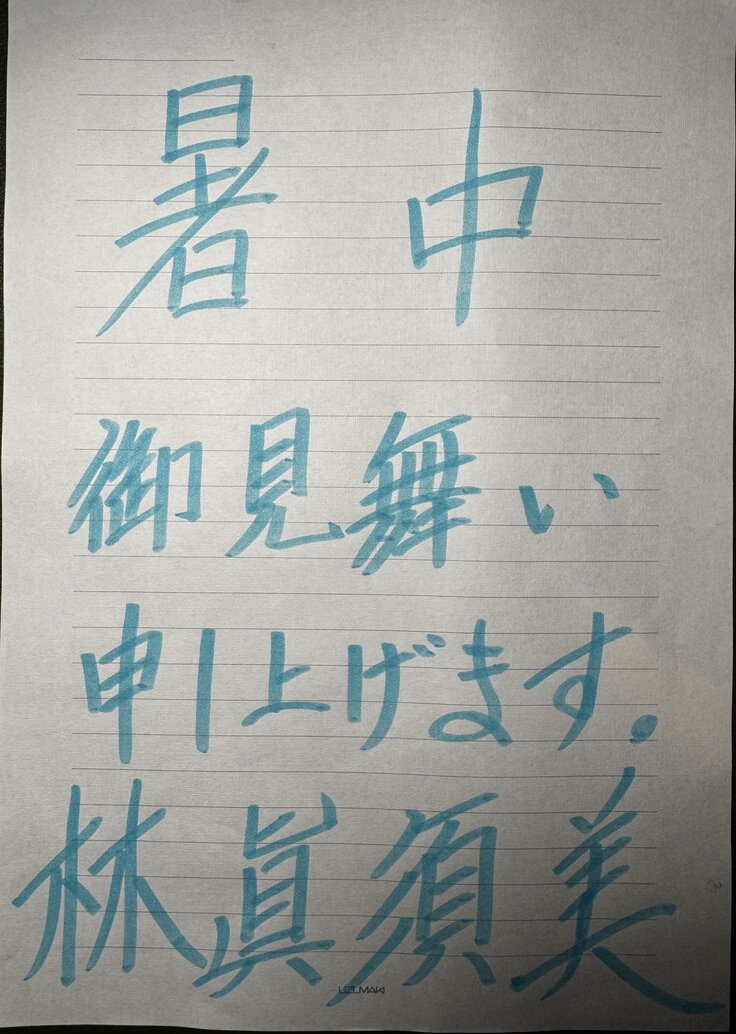 暑中
御見舞い
申し上げます。
林眞須美
UZUMAKI